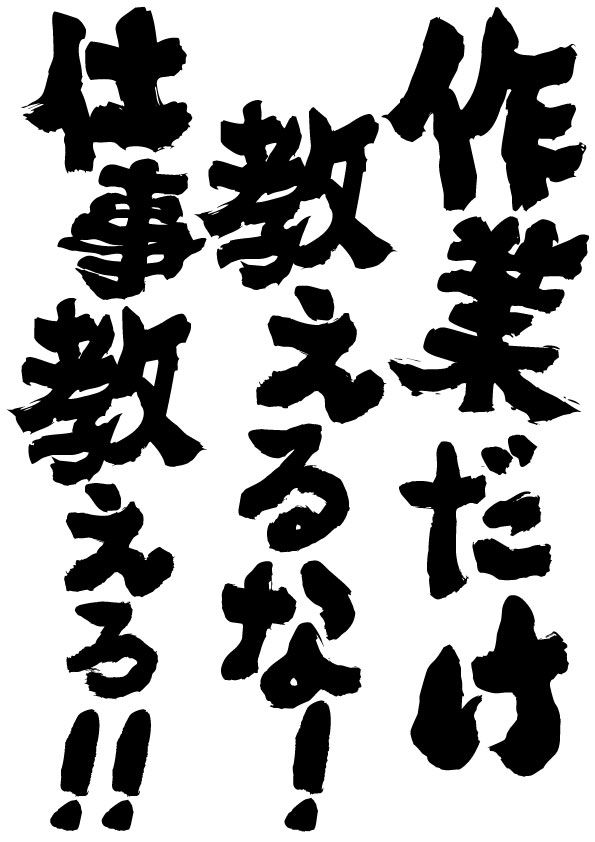 作業だけ
教えるな!
仕事教えろ!!